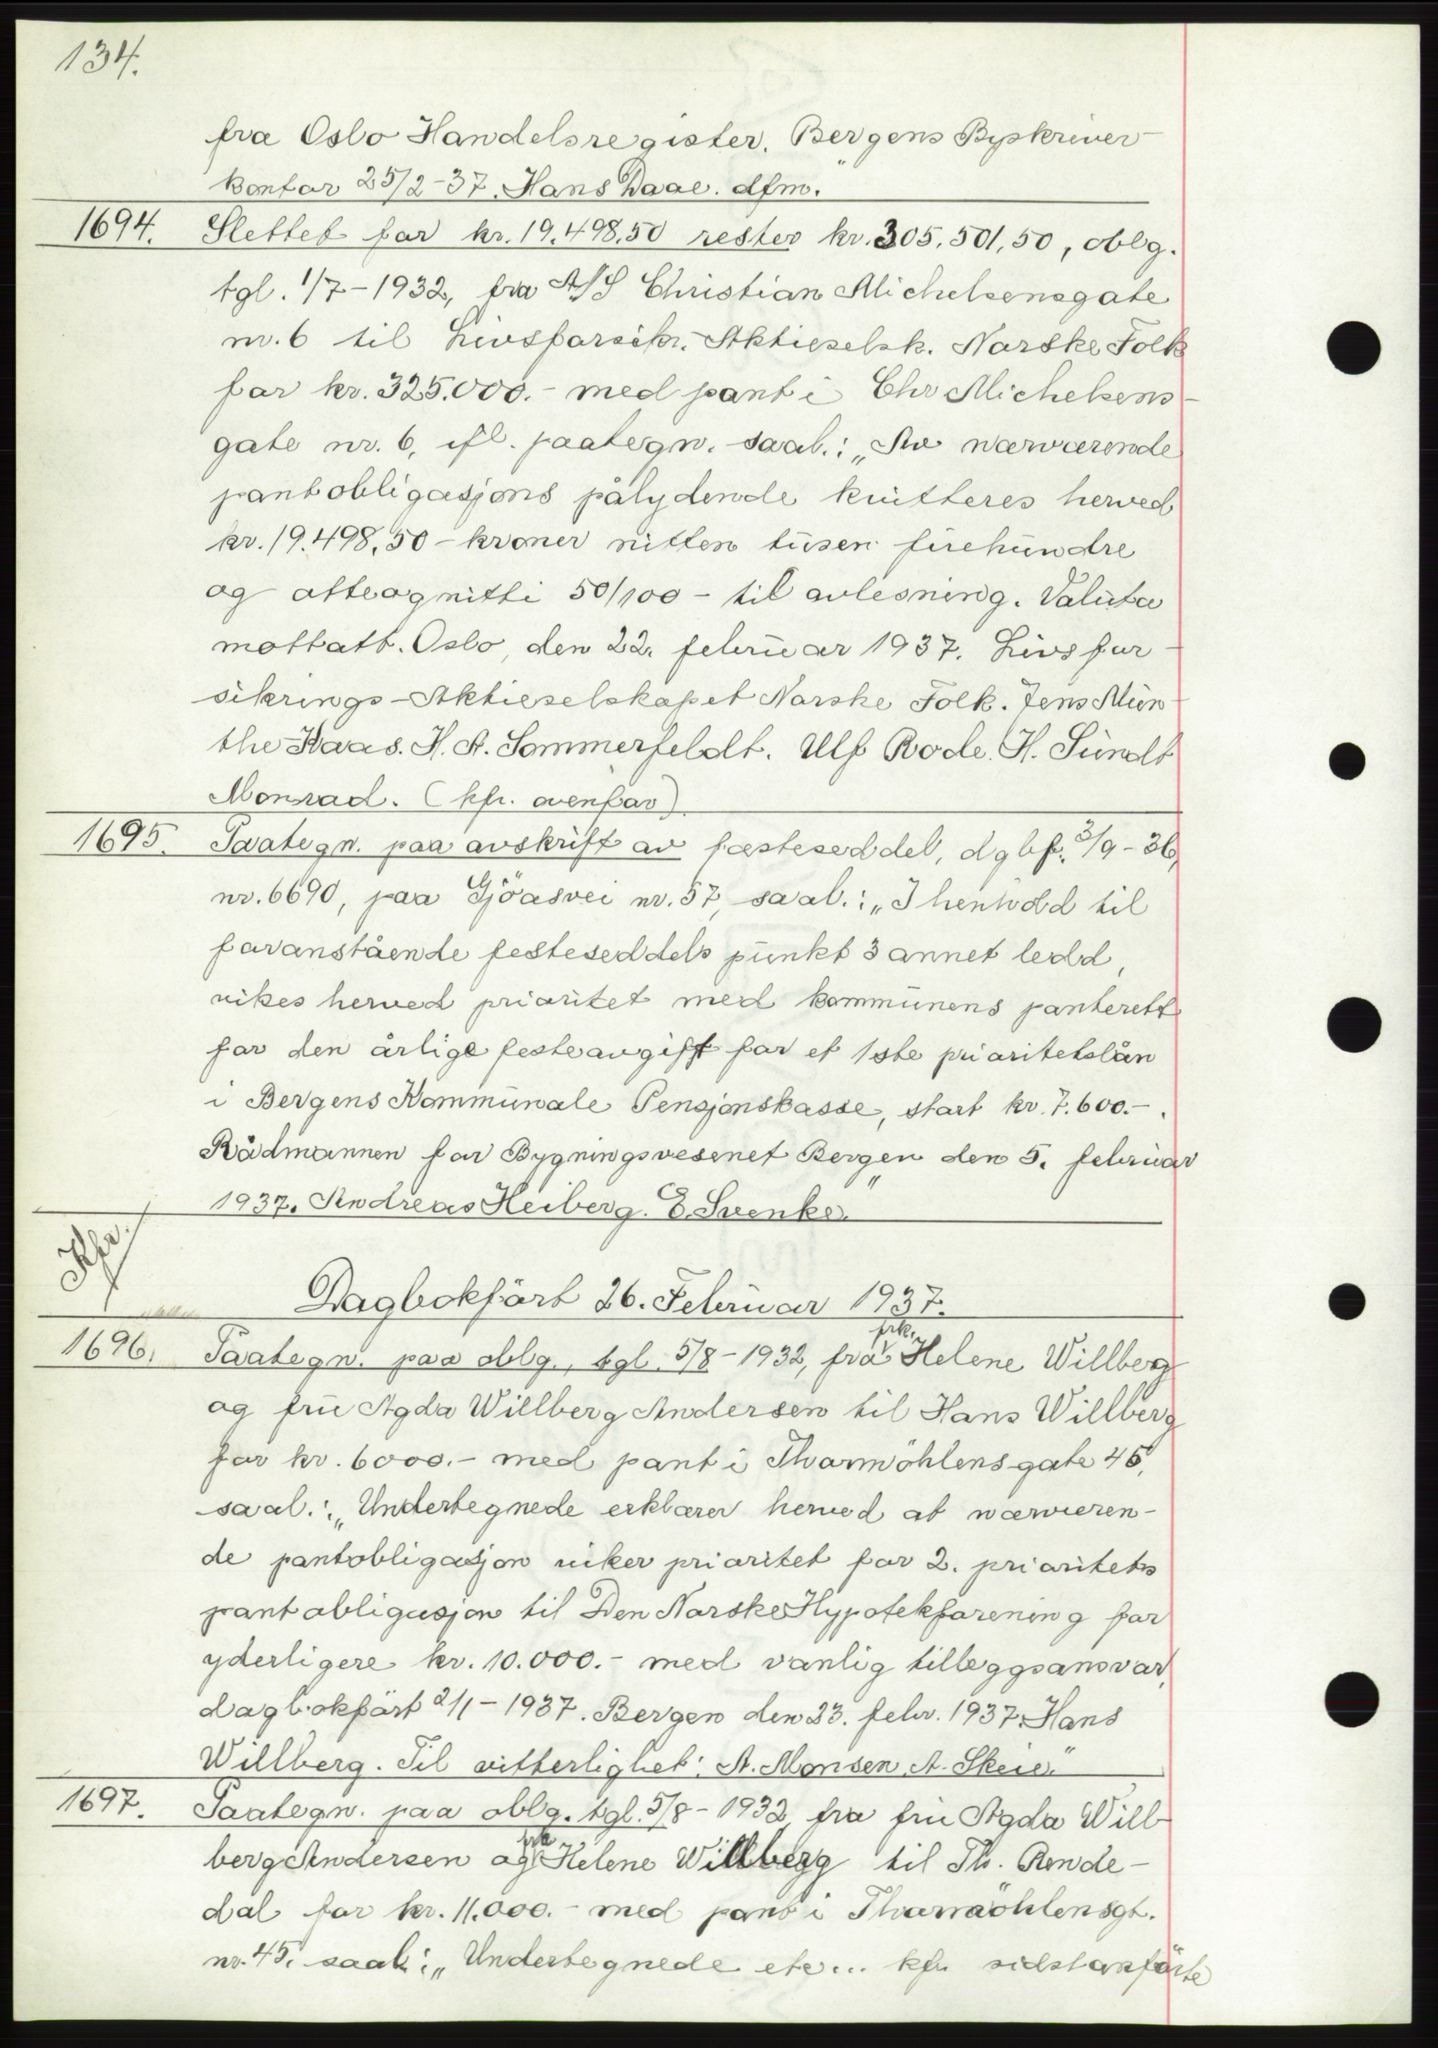 134.
fra Oslo Handelsregister. Bergens Byskriver-
kontor 25/2-37. Hans Daae. dfm."
1694. Slettet for kr. 19.498,50 rester kr. 305.501,50, oblg.
tgl. 1/7-1932, fra A/S Christian Michelsensgate
nr. 6 til Livsforsikr.-Aktieselsk. Norske Folk
for kr. 325.000.- med pant i Chr Michelsens-
gate nr. 6, ifl. paategn. saal.: „Av nærværende
pantobligasjons pålydende kvitteres herved
kr. 19.498,50 - kroner nitten tusen firehundre
og åtteognitti 50/100 - til avlesning. Valuta
mottatt. Oslo, den 22. februar 1937. Livsfor-
sikrings-Aktieselskapet Norske Folk. Jens Mün-
the Kaas. H. A. Sommerfeldt. Ulf Rode. H. Sundt
Monrad. (kfr. ovenfor)
1695. Paategn. paa avskrift av festeseddel, dgbf. 3/9-36,
nr. 6690, paa Gjöasvei nr. 57, saal.: „I henhold til
foranstående festeseddels punkt 3 annet ledd,
vikes herved prioritet med kommunens panterett
for den årlige festeavgift for et 1ste prioritetslån
i Bergens Kommunale Pensjonskasse, stort kr. 7.600.-.
Rådmannen for Bygningsvesenet Bergen den 5. februar
1937. Andreas Heiberg. E. Svenke."
Kfr.
Dagbokfört 26. Februar 1937.
1696. Paategn. paa oblg., tgl. 5/8-1932, fra frk. Helene Willberg
og frü Agda Willberg Andersen til Hans Willberg
for kr. 6000.- med pant i Thormöhlensgate 45,
saal.: „Undertegnede erklærer herved at nærværen-
de pantobligasjon viker prioritet for 2. prioritets
pantobligasjon til Den Norske Hypotekforening for
yderligere kr. 10.000.- med vanlig tilleggsansvar,
dagbokfört 2/1-1937. Bergen den 23. febr. 1937. Hans
Willberg. Til vitterlighet: A. Monsen A. Skeie."
1697. Paategn. paa oblg. tgl. 5/8-1932 fra frü Agda Will-
berg Andersen og frk Helene Willberg til Th. Rende-
dal for kr. 11.000.- med pant i Thormöhlensgt.
nr. 45, saal: „Undertegnede etc... kfr. sidstanførte